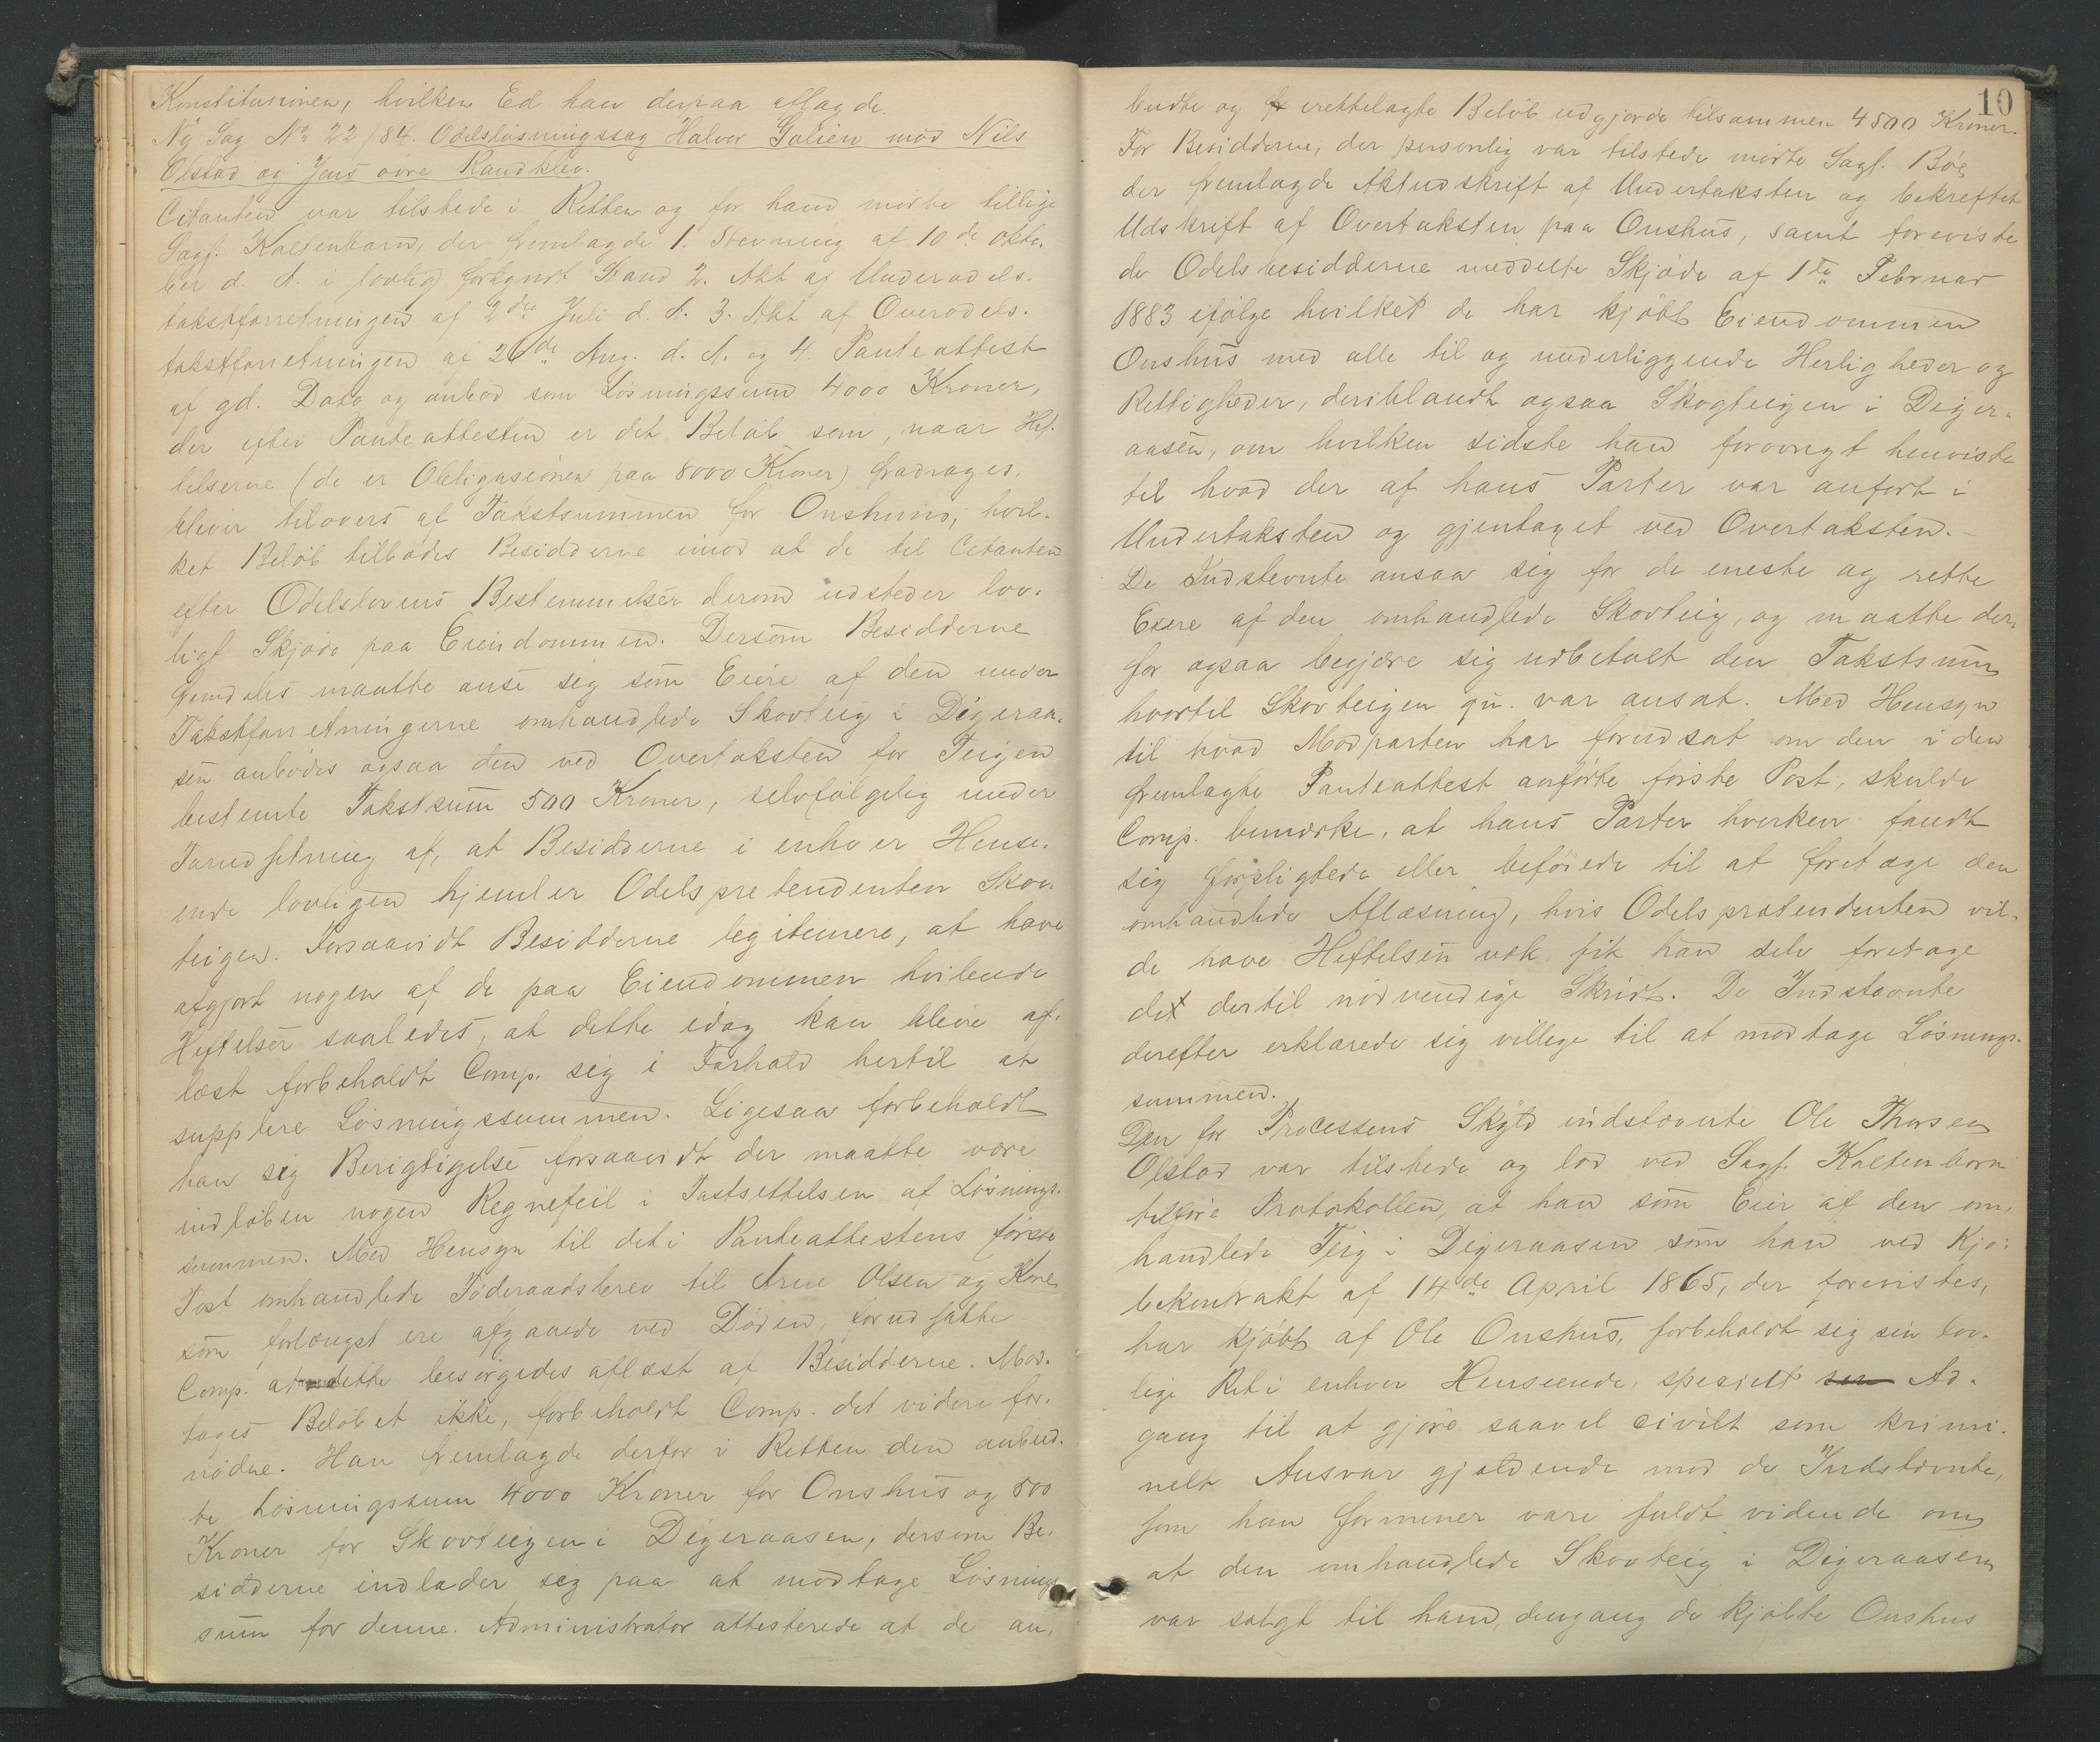 Konstitusionen, hvilken Ed han derpaa aflagde.
Ny Sag No 22/84. Odelsløsningssag Halvor Golien mod Nils
Olstad og Jens øvre Randklev.
Citanten var tilstede i Retten og for ham mødte tillige
Sagf. Kaltenborn, der fremlagde 1. Stevning af 10de Okto-
ber d. A. i lovlig forkyndt Stand 2. Akt af Underodels-
takstforretningen af 2den Juli d. A. 3. Akt af Overodels-
takstforretningen af 26de Aug. d. A. og 4. Panteattest
af gd. Dato og anbød som Løsningssum 4000 Kroner,
der efter Panteattesten er det Beløb som, naar Hef-
telserne (de er Obligasionen paa 8000 Kroner) fradrages,
bliver tilovers af Takstsummen for Onshuus, hvil-
ket Beløb tilbødes Besidderne imod at de til Citanten
efter Odelslovens Bestemmelser derom udsteder lov-
ligt Skjøde paa Eiendommen. Dersom Besidderne
fremdeles maatte anse sig som Eiere af den under
Takstforretningerne omhandlede Skovteig i Digeraa-
sen anbødes ogsaa den ved Overtaksten for Teigen
bestemte Takstsum 500 Kroner, selvfølgelig under
Forudsetning af, at Besidderne i enhver Hense-
ende lovligen hjemler Odelspretendenten Skov-
teigen. Forsaavidt Besidderne legitimere, at have
afgjort nogen af de paa Eiendommen hvilende
Heftelser saaledes, at dette idag kan blive af-
læst forbeholdt Comp. sig i Forhold hertil at
supplere Løsningssummen. Ligesaa forbeholdt
han sig Berigtigelse forsaavidt der maatte være
indløben nogen Regnefeil i Fastsettelsen af Løsnings-
summen. Med Hensyn til det i Panteattestens første
Post omhandlede Føderaadsbrev til Arne Olsen og Kone
som forlængst ere afgaaede ved Døden, forudsatte
Comp. at dette besørgedes aflæst af Besidderne. Mod-
tages Beløbet ikke, forbeholdt Comp. det videre for-
nødne. Han fremlagde derfor i Retten den anbud-
te Løsningssum 4000 Kroner for Onshus og 500
Kroner for Skovteigen i Digeraasen, dersom Be-
sidderne indlader sig paa at modtage Løsnings-
sum for denne. Administrator attesterede at de an-
10
budte og irettelagte Beløb udgjorde tilsammen 4500 Kroner.
For Besidderne, der personlig var tilstede mødte Sagf. Bøe
der fremlagde Aktudskrift af Undertaksten og bekreftet
Udskrift af Overtaksten paa Onshus, samt foreviste
de Odelsbesidderne meddelte Skjøde af 1ste Februar
1883 ifølge hvilket de har kjøbt Eiendommen
Onshus med alle til og underliggende Herligheder og
Rettigheder, deriblandt ogsaa Skogteigen i Diger-
aasen, om hvilken sidste han forøvrigt henviste
til hvad der af hans Parter var anført i
Undertaksten og gjentaget ved Overtaksten.
De Indstevnte ansaa sig for de eneste og rette
Eiere af den omhandlede Skovteig, og maatte der-
for ogsaa begjære sig udbetalt den Takstsum
hvortil Skovteigen qu. var ansat. Med Hensyn
til hvad Modparten har forudsat om den i den
fremlagte Panteattest anførte første Post, skulde
Comp. bemærke, at hans Parter hverken fandt
sig forpligtede eller beføiede til at foretage den
omhandlede Aflæsning, hvis Odelsprætendenten vil-
de have Heftelsen vek fik han selv foretage
det dertil nødvendige Skridt. De Indstævnte
derefter erklærede sig villige til at modtage Løsnings-
summen.
Den for Processens Skyld indstævnte Ole Thorsen
Olstad var tilstede og lod ved Sagf. Kaltenborn
tilføre Protokollen, at han som Eier af den om-
handlede Teig i Digeraasen som han ved Kjø-
bekontrakt af 14de April 1865, der forevistes,
har kjøbt af Ole Onshus, forbeholdt sig sin lov-
lige Ret i enhver Henseende, specielt Ad-
gang til at gjøre saavel civilt som krimi-
nelt Ansvar gjældende mod de Indstævnte,
som han formener vare fuldt vidende om,
at den omhandlede Skovteig i Digeraasen
var solgt til ham, dengang de kjøbte Onshus